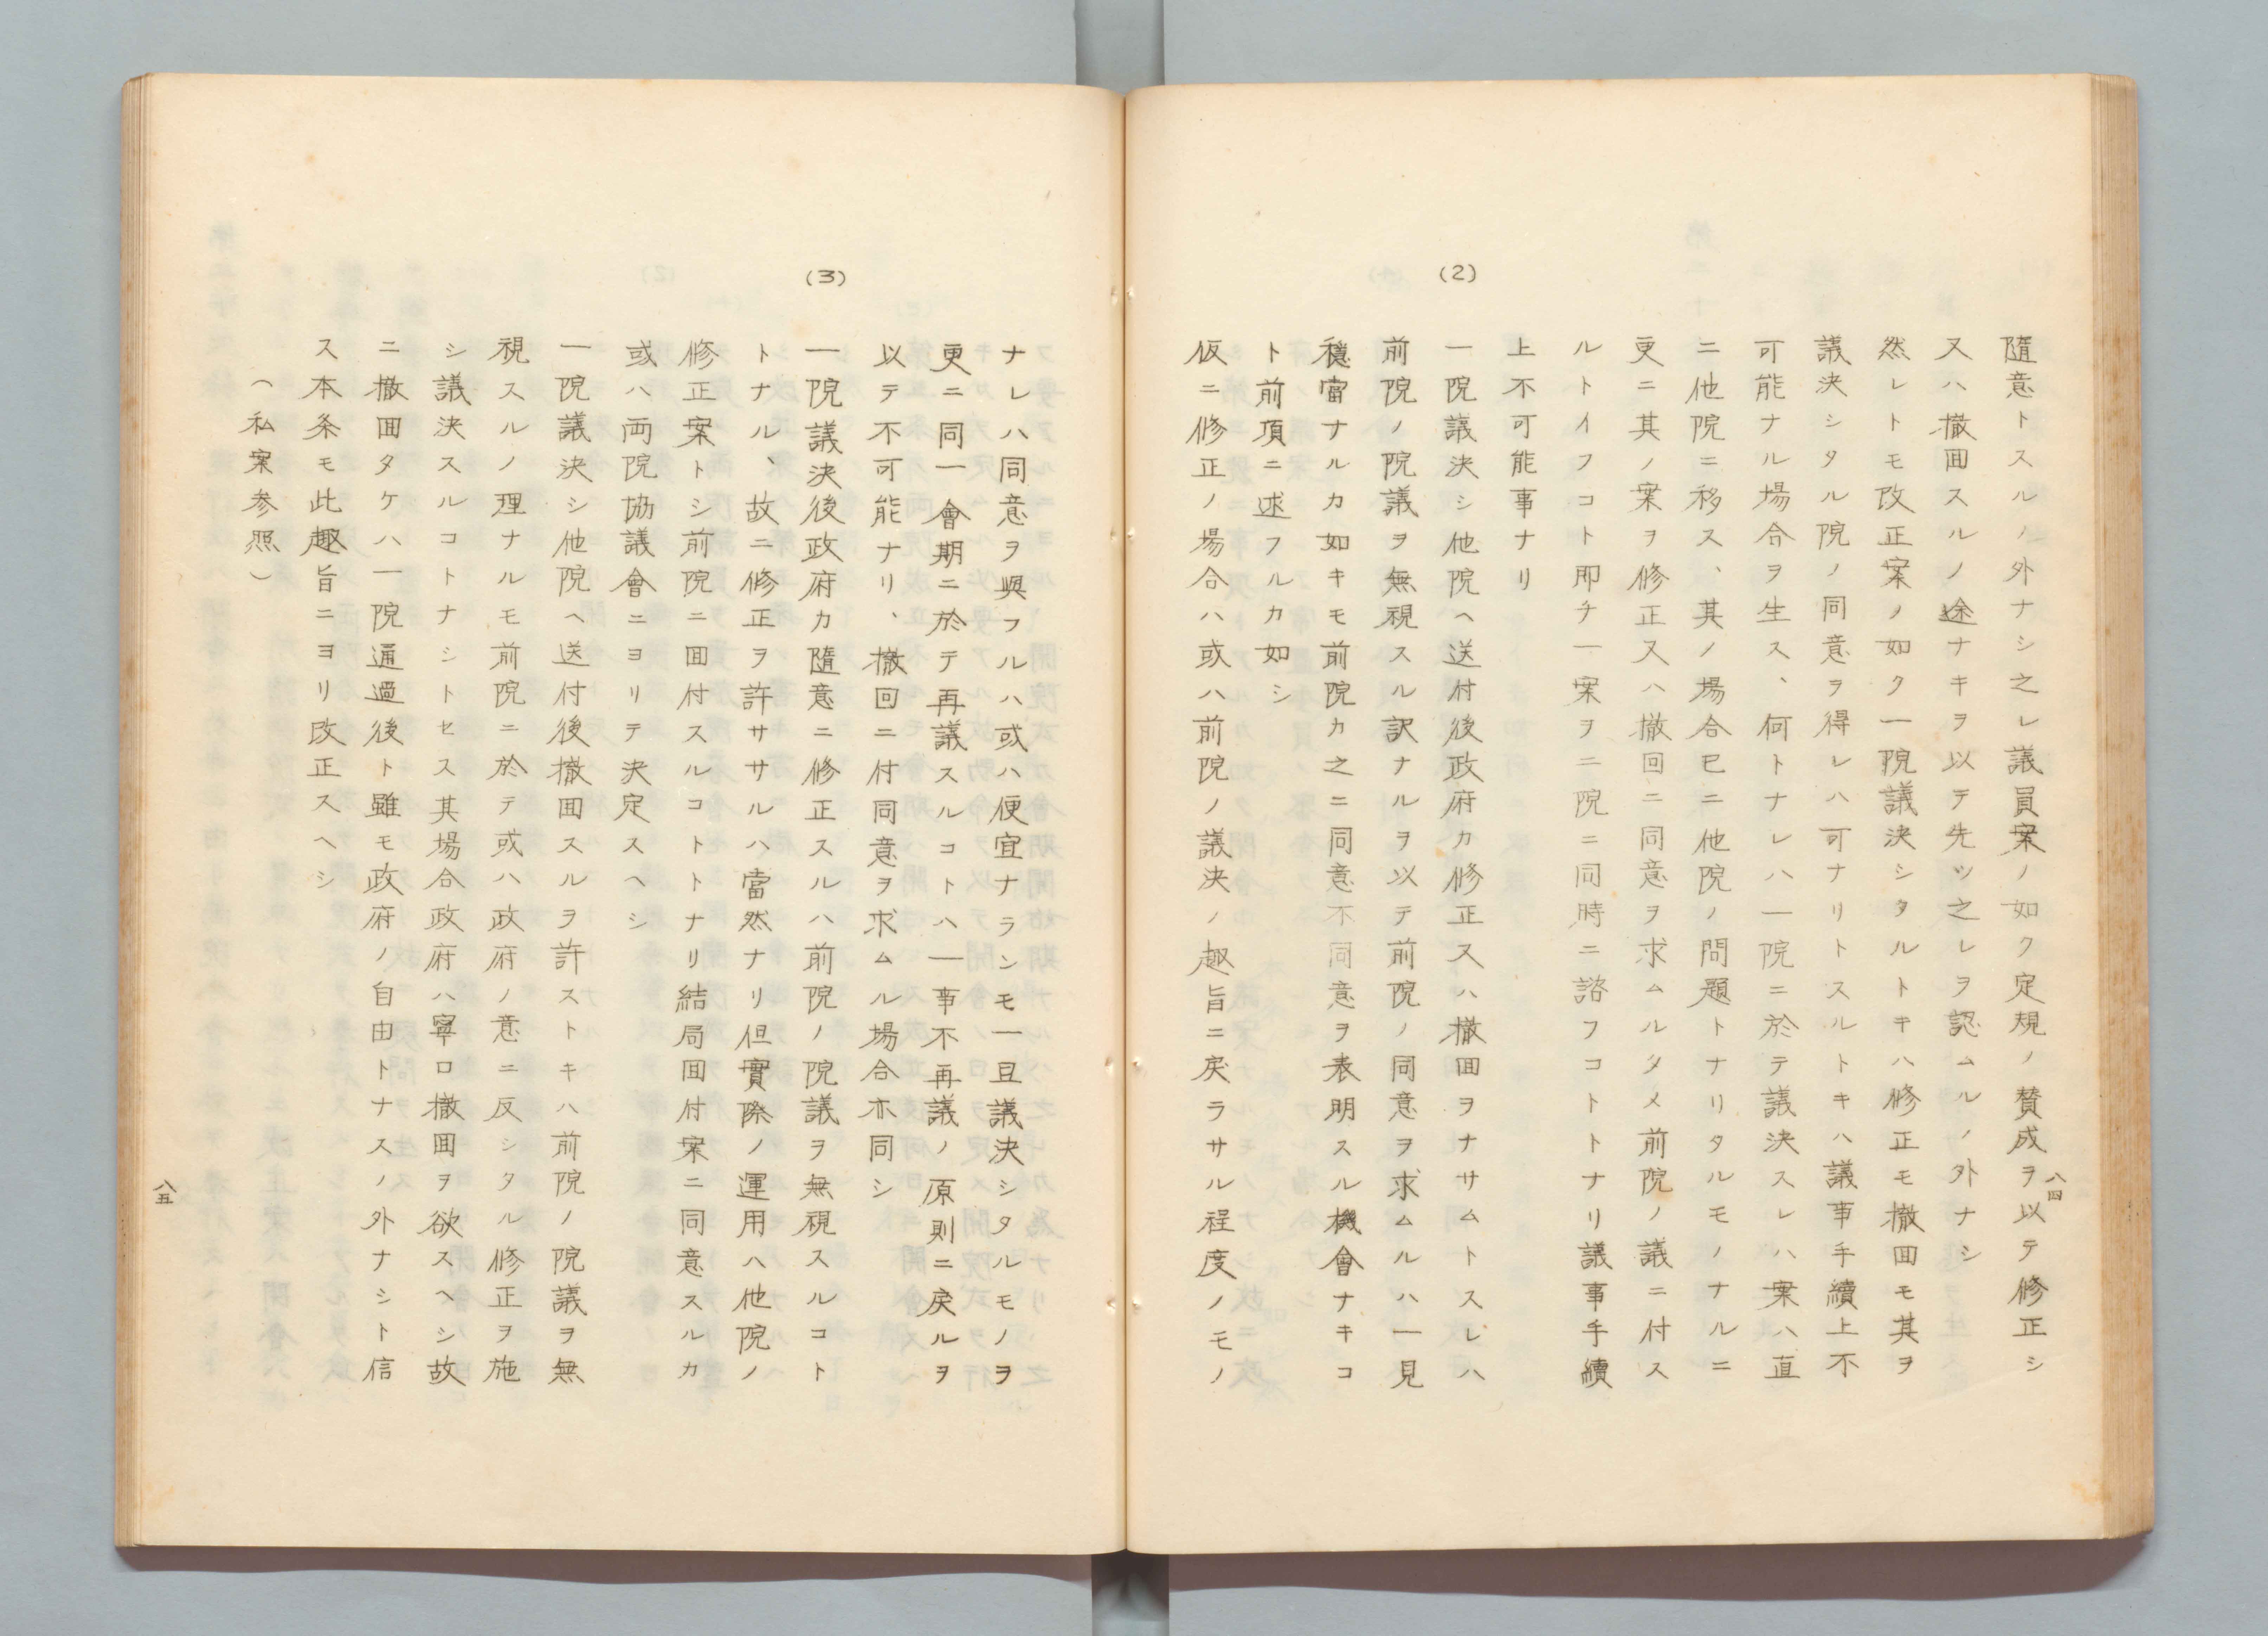 八四
隨意トスルノ外ナシ之レ議員案ノ如ク定規ノ賛成ヲ以テ修正シ
又ハ撤囬スルノ途ナキヲ以テ先ツ之レヲ認ムルノ外ナシ
然レトモ改正案ノ如ク一院議決シタルトキハ修正モ撤囬モ其ヲ
議決シタル院ノ同意ヲ得レハ可ナリトスルトキハ議事手續上不
可能ナル場合ヲ生ス、何トナレハ一院ニ於テ議決スレハ案ハ直
ニ他院ニ移ス、其ノ場合已ニ他院ノ問題トナリタルモノナルニ
更ニ其ノ案ヲ修正又ハ撤回ニ同意ヲ求ムルタメ前院ノ議ニ付ス
ルトイフコト即チ一案ヲ二院ニ同時ニ諮フコトトナリ議事手續
上不可能事ナリ
(2)
一院議決シ他院ヘ送付後政府カ修正又ハ撤囬ヲナサムトスレハ
前院ノ院議ヲ無視スル訳ナルヲ以テ前院ノ同意ヲ求ムルハ一見
穩當ナルカ如キモ前院カ之ニ同意不同意ヲ表明スル機會ナキコ
ト前項ニ述フルカ如シ
仮ニ修正ノ場合ハ或ハ前院ノ議決ノ趣旨ニ戻ラサル程度ノモノ
ナレハ同意ヲ與フルハ或ハ便宜ナランモ一旦議決シタルモノヲ
更ニ同一會期ニ於テ再議スルコトハ一事不再議ノ原則ニ戻ルヲ
以テ不可能ナリ、撤回ニ付同意ヲ求ムル場合亦同シ
(3)
一院議決後政府カ隨意ニ修正スルハ前院ノ院議ヲ無視スルコト
トナル、故ニ修正ヲ許ササルハ當然ナリ但實際ノ運用ハ他院ノ
修正案トシ前院ニ囬付スルコトトナリ結局囬付案ニ同意スルカ
或ハ両院協議會ニヨリテ決定スヘシ
一院議決シ他院ヘ送付後撤囬スルヲ許ストキハ前院ノ院議ヲ無
視スルノ理ナルモ前院ニ於テ或ハ政府ノ意ニ反シタル修正ヲ施
シ議決スルコトナシトセス其場合政府ハ寧ロ撤囬ヲ欲スヘシ故
ニ撤囬タケハ一院通過後ト雖モ政府ノ自由トナスノ外ナシト信
ス本条モ此趣旨ニヨリ改正スヘシ
（私案参照）
八五